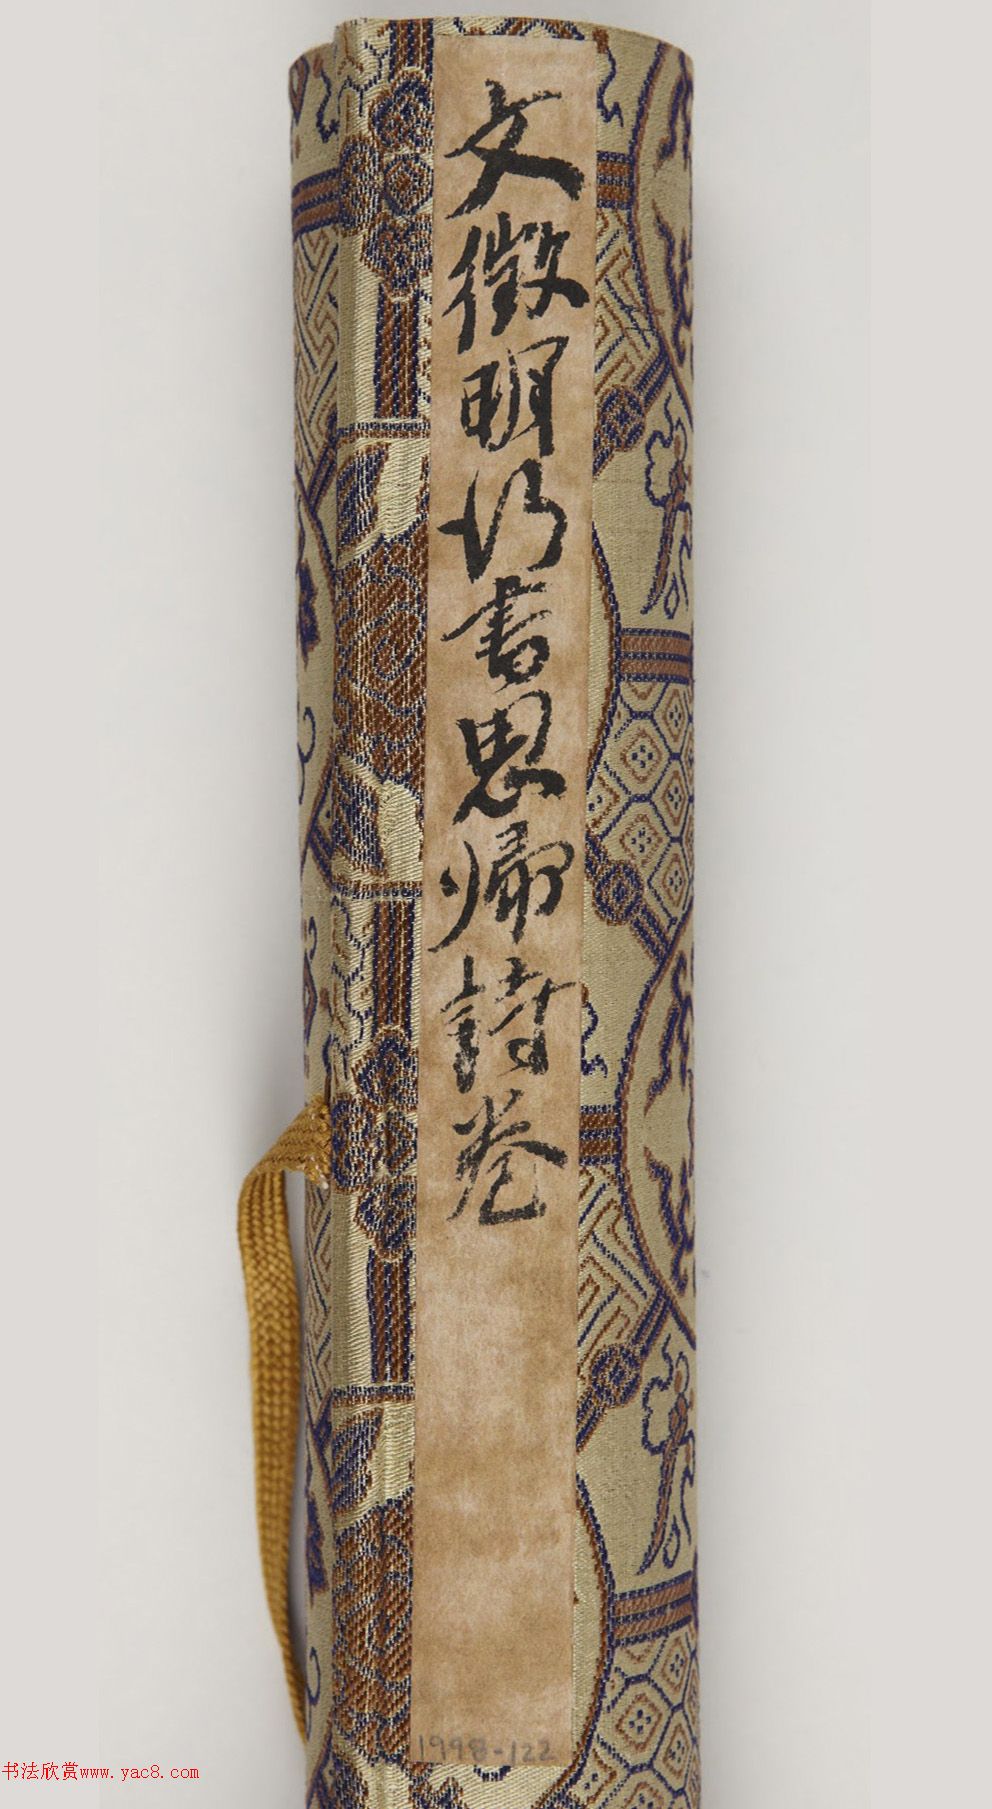 文徵明行書思歸詩卷
1998-122
书法欣赏www.yac8.com